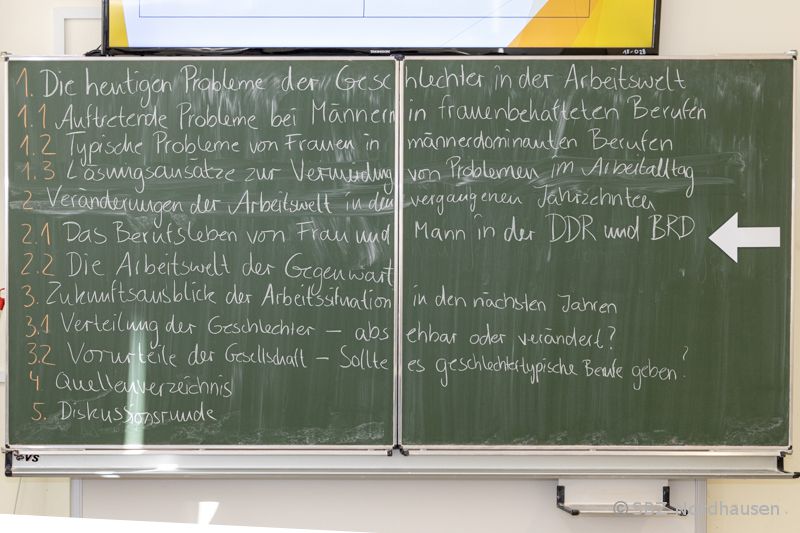 1. Die heutigen Probleme der Geschlechter in der Arbeitswelt
1.1 Auftretende Probleme bei Männern in frauenbehafteten Berufen
1.2 Typische Probleme von Frauen in männerdominanten Berufen
1.3 Lösungsansätze zur Vermeidung von Problemen im Arbeitalltag
2. Veränderungen der Arbeitswelt in den vergangenen Jahrzehnten
2.1 Das Berufsleben von Frau und Mann in der DDR und BRD
2.2 Die Arbeitswelt der Gegenwart
3. Zukunftsausblick der Arbeitssituation in den nächsten Jahren
3.1 Verteilung der Geschlechter – absehbar oder verändert?
3.2 Vorurteile der Gesellschaft – Sollte es geschlechtertypische Berufe geben?
4. Quellenverzeichnis
5. Diskussionsrunde
VS
© SBZ Nordhausen